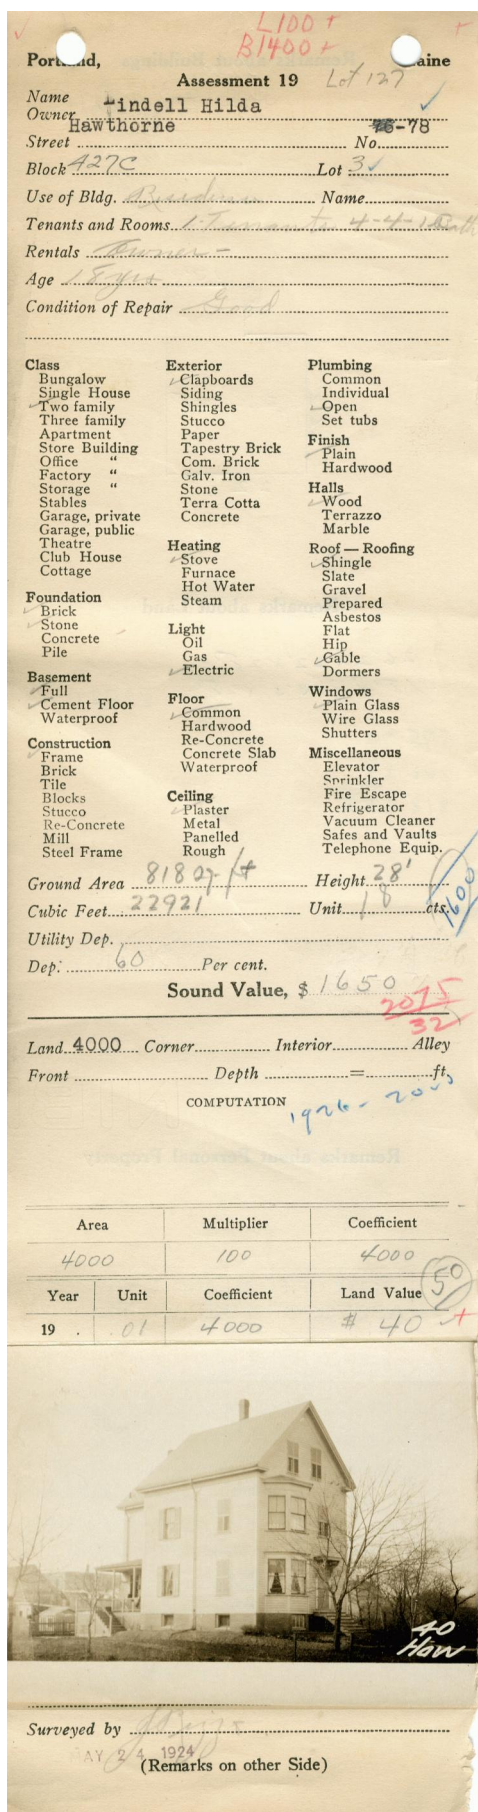 L100 +
B1400 +
Portland, Maine
Assessment 19 Lot 127
Name
Owner indell Hilda
Hawthorne 76-78
Street No.
Block 427C Lot 3
Use of Bldg. Name
Tenants and Rooms 1 Tenants 4-4-1 Bath
Rentals Owner -
Age 18 yrs
Condition of Repair Good
Class
Bungalow
Single House
Two family
Three family
Apartment
Store Building
Office "
Factory "
Storage "
Stables
Garage, private
Garage, public
Theatre
Club House
Cottage
Foundation
Brick
Stone
Concrete
Pile
Basement
Full
Cement Floor
Waterproof
Construction
Frame
Brick
Tile
Blocks
Stucco
Re-Concrete
Mill
Steel Frame
Exterior
Clapboards
Siding
Shingles
Stucco
Paper
Tapestry Brick
Com. Brick
Galv. Iron
Stone
Terra Cotta
Concrete
Heating
Stove
Furnace
Hot Water
Steam
Light
Oil
Gas
Electric
Floor
Common
Hardwood
Re-Concrete
Concrete Slab
Waterproof
Ceiling
Plaster
Metal
Panelled
Rough
Plumbing
Common
Individual
Open
Set tubs
Finish
Plain
Hardwood
Halls
Wood
Terrazzo
Marble
Roof — Roofing
Shingle
Slate
Gravel
Prepared
Asbestos
Flat
Hip
Gable
Dormers
Windows
Plain Glass
Wire Glass
Shutters
Miscellaneous
Elevator
Sprinkler
Fire Escape
Refrigerator
Vacuum Cleaner
Safes and Vaults
Telephone Equip.
Ground Area 818 Height 28'
Cubic Feet 22921 Unit 18 cts.
1600
Utility Dep.
Dep. 60 Per cent.
Sound Value, $ 1650
2075
32
Land 4000 Corner Interior Alley
Front Depth = ft.
COMPUTATION
1926-
Area Multiplier Coefficient
4000 100 4000
50
Year Unit Coefficient Land Value
19 . .01 4000 $ 40
40
Haw
Surveyed by
AY 24 1924
(Remarks on other Side)